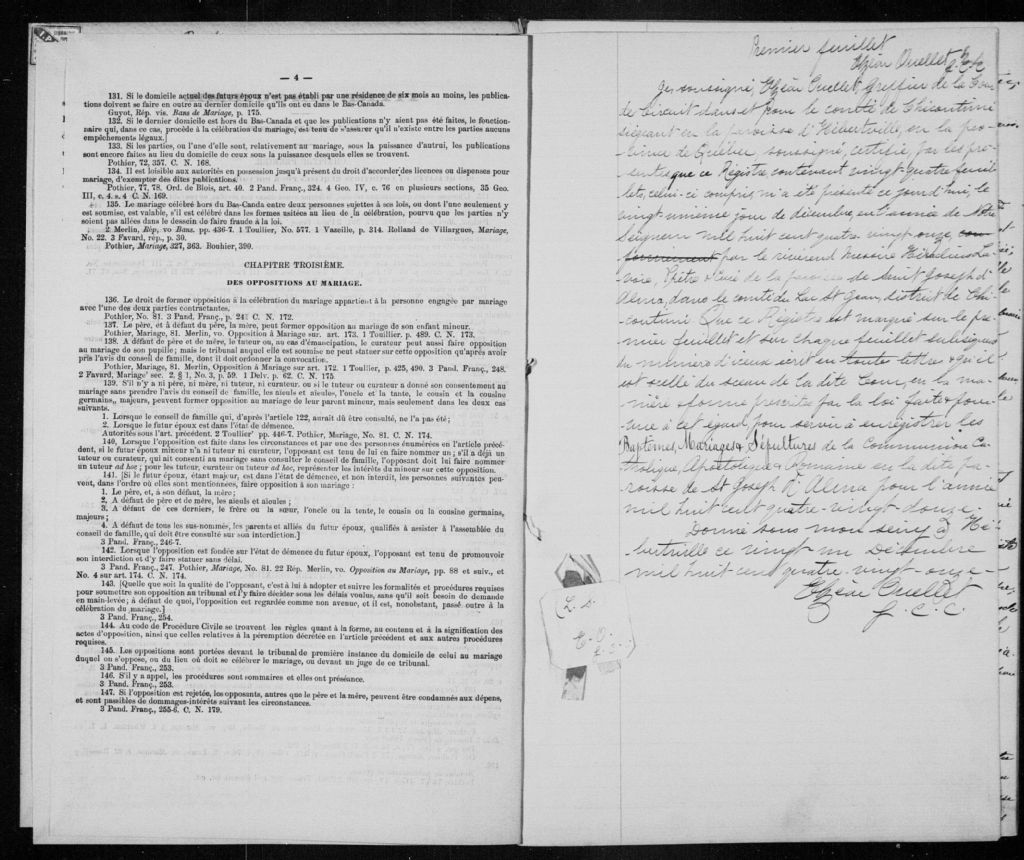 — 4 —
131. Si le domicile actuel des futurs époux n'est pas établi par une résidence de six mois au moins, les publica-
tions doivent se faire en outre au dernier domicile qu'ils ont eu dans le Bas-Canada.
Guyot, Rép. vis. Bans de Mariage, p. 175.
132. Si le dernier domicile est hors du Bas-Canada et que les publications n'y aient pas été faites, le fonction-
naire qui, dans ce cas, procède à la célébration du mariage, est tenu de s'assurer qu'il n'existe entre les parties aucuns
empêchements légaux.
133. Si les parties, ou l'une d'elle sont, relativement au mariage, sous la puissance d'autrui, les publications
sont encore faites au lieu du domicile de ceux sous la puissance desquels elles se trouvent.
Pothier, 72, 357. C. N. 168.
134. Il est loisible aux autorités en possession jusqu'à présent du droit d'accorder des licences ou dispenses pour
mariage, d'exempter des dites publications.
Pothier, 77, 78. Ord. de Blois, art. 40. 2 Pand. Franç., 324. 4 Geo. IV, c. 76 en plusieurs sections, 35 Geo.
III, c. 4. s. 4 C. N. 169.
135. Le mariage célébré hors du Bas-Canada entre deux personnes sujettes à ses lois, ou dont l'une seulement y
est soumise, est valable, s'il est célébré dans les formes usitées au lieu de la célébration, pourvu que les parties n'y
soient pas allées dans le dessein de faire fraude à la loi.
2 Merlin, Rép, vo Bans. pp. 436-7. 1 Toullier, No. 577. 1 Vazeille, p. 314. Rolland de Villargues, Mariage,
No. 22. 3 Favard, rép., p. 30.
Pothier, Mariage, 327, 363. Bouhier, 390.
CHAPITRE TROISIÈME.
DES OPPOSITIONS AU MARIAGE.
136. Le droit de former opposition à la célébration du mariage appartient à la personne engagée par mariage
avec l'une des deux parties contractantes.
Pothier, No. 81. 3 Pand. Franç., p. 241 C. N. 172.
137. Le père, et à défaut du père, la mère, peut former opposition au mariage de son enfant mineur.
Pothier, Mariage, 81. Merlin, vo. Opposition à Mariage sur. art. 173. 1 Toullier. p. 489. C. N. 173.
138. A défaut de père et de mère, le tuteur ou, au cas d'émancipation, le curateur peut aussi faire opposition
au mariage de son pupille; mais le tribunal auquel elle est soumise ne peut statuer sur cette opposition qu'après avoir
pris l'avis du conseil de famille, dont il doit ordonner la convocation.
Pothier, Mariage, 81. Merlin, Opposition à Mariage sur art. 172. 1 Toullier, p. 425, 490. 3 Pand. Franç., 248.
2 Favard, Mariage' sec. 2. § 1, No. 3, p. 59. 1 Delv. p. 62. C. N. 175.
139. S'il n'y a ni père, ni mère, ni tuteur, ni curateur. ou si le tuteur ou curateur a donné son consentement au
mariage sans prendre l'avis du conseil de famille, les aieuls et aieules, l'oncle et la tante, le cousin et la cousine
germains, majeurs, peuvent former opposition au mariage de leur parent mineur, mais seulement dans les deux cas
suivants.
1. Lorsque le conseil de famille qui, d'après l'article 122, aurait dû être consulté, ne l'a pas été;
2. Lorsque le futur époux est dans l'état de démence.
Autorités sous l'art. précédent. 2 Toullier' pp. 446-7. Pothier, Mariage, No. 81. C. N. 174.
140. Lorsque l'opposition est faite dans les circonstances et par une des personnes énumérées en l'article précé-
dent, si le futur époux mineur n'a ni tuteur ni curateur, l'opposant est tenu de lui en faire nommer un; s'il a déjà un
tuteur ou curateur, qui ait consenti au mariage sans consulter le conseil de famille, l'opposant doit lui faire nommer
un tuteur ad hoc; pour les tuteur, curateur ou tuteur ad hoc, représenter les intérêts du mineur sur cette opposition.
141. [Si le futur époux, étant majeur, est dans l'état de démence, et non interdit, les personnes suivantes peu-
vent, dans l'ordre où elles sont mentionnées, faire opposition à son mariage:
1. Le père, et, à son défaut, la mère;
2. A défaut de père et de mère, les aieuls et aieules;
3. A défaut de ces derniers, le frère ou la sœur, l'oncle ou la tante, le cousin ou la cousine germains,
majeurs;
4. A défaut de tous les sus-nommés, les parents et alliés du futur époux, qualifiés à assister à l'assemblée du
conseil de famille, qui doit être consulté sur son interdiction.]
3 Pand. Franç., 246-7.
142. Lorsque l'opposition est fondée sur l'état de démence du futur époux, l'opposant est tenu de promouvoir
son interdiction et d'y faire statuer sans délai.
3 Pand. Franç., 247. Pothier, Mariage, No. 81. 22 Rép. Merlin, vo. Opposition au Mariage, pp. 88 et suiv., et
No. 4 sur art. 174. C. N. 174.
143. [Quelle que soit la qualité de l'opposant, c'est à lui à adopter et suivre les formalités et procédures requises
pour soumettre son opposition au tribunal et l'y faire décider sous les délais voulus, sans qu'il soit besoin de demande
en main-levée; à défaut de quoi, l'opposition est regardée comme non avenue, et il est, nonobstant, passé outre à la
célébration du mariage.]
3 Pand. Franç., 254.
144. Au code de Procédure Civile se trouvent les règles quant à la forme, au contenu et à la signification des
actes d'opposition, ainsi que celles relatives à la péremption décrétée en l'article précédent et aux autres procédures
requises.
145. Les oppositions sont portées devant le tribunal de première instance du domicile de celui au mariage
duquel on s'oppose, ou du lieu où doit se célébrer le mariage, ou devant un juge de ce tribunal.
3 Pand. Franç., 253.
146. S'il y a appel, les procédures sont sommaires et elles ont préséance.
3 Pand. Franç., 253.
147. Si l'opposition est rejetée, les opposants, autres que le père et la mère, peuvent être condamnés aux dépens,
et sont passibles de dommages-intérêts suivant les circonstances.
3 Pand. Franç., 255-6. C. N. 179.
Premier feuillet
Elzéar Ouellet
Je, soussigné, Elzéar Ouellet Greffier de la Cour
de Circuit dans et pour le comté de Chicoutimi
siégeant en la paroisse d'Hébertville, en la pro-
vince de Québec, soussigné, certifie par les pré-
sentes que ce Régistre contenant vingt-quatre feuil-
lets, celui-ci compris, m'a été présenté ce jourd'hui, le
vingt-unième jour de décembre, en l'année de Notre
Seigneur mil huit cent quatre-vingt-onze,
par le révérend Messire
Prêtre & Curé de la paroisse de Saint Joseph d'
Alma, dans le comté du Lac St Jean, district de Chi-
coutimi. Que ce Régistre est marqué sur le pre-
mier feuillet et sur chaque feuillet subséquent
du numéro d'iceux écrit en toute lettre & qu'il
est scellé du sceau de la dite Cour, en la ma-
nière & forme prescrite par la loi faite & pour-
vue à cet égard, pour servir à enregistrer les
Baptêmes, Mariages & Sépultures de la Communion Ca-
tholique, Apostolique & Romaine en la dite pa-
roisse de St Joseph d'Alma pour l'année
mil huit cent quatre-vingt-douze.
Donné sous mon seing à Hé-
bertville ce vingt-un Décembre
mil huit-cent quatre-vingt-onze-
Elzéar Ouellet
G. C. C.
L. S.